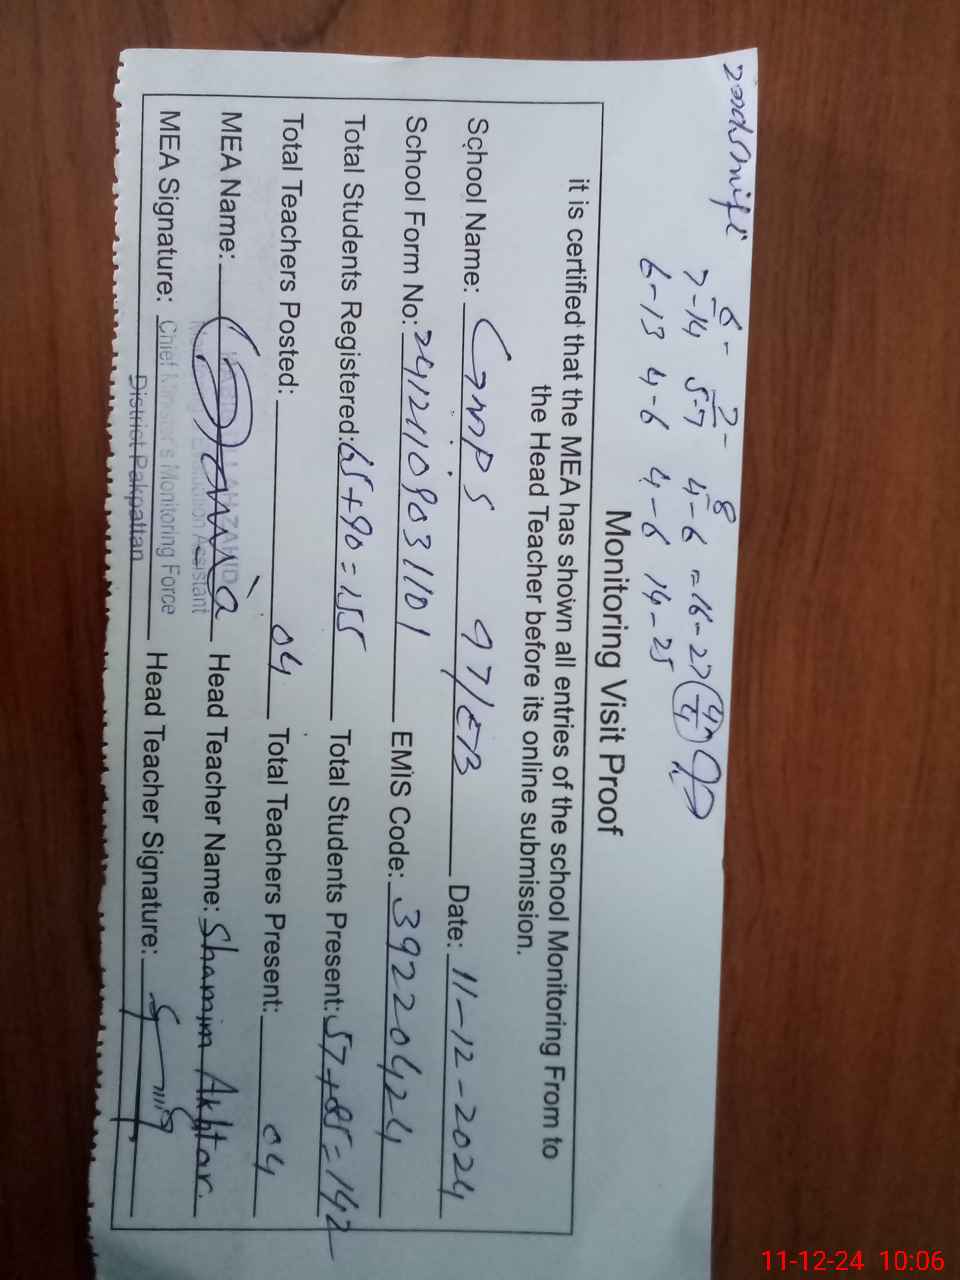 6- 2- 8
7-14 5-7 4-6 =16-27
6-13 4-6 4-6 14-25
Monitoring Visit Proof
it is certified that the MEA has shown all entries of the school Monitoring From to
the Head Teacher before its online submission.
School Name: GMPS 97/EB Date: 11-12-2024
School Form No: 24121109031101 EMIS Code: 39220424
Total Students Registered: 65+90=155 Total Students Present: 57+85=142
Total Teachers Posted: 04 Total Teachers Present: 04
MEA Name: Head Teacher Name: Shamim Akhtar
Monitoring Evaluation Assistant
MEA Signature: Head Teacher Signature:
Chief Minister's Monitoring Force
District Pakpattan
11-12-24 10:06